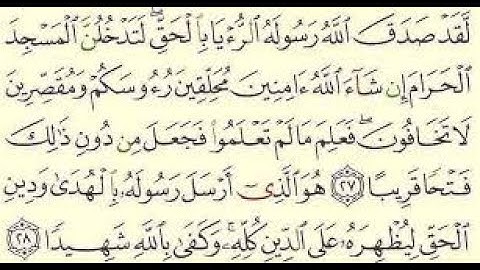 لَّقَدْ صَدَقَ اللَّهُ رَسُولَهُ الرُّءْيَا بِالْحَقِّ ۖ لَتَدْخُلُنَّ الْمَسْجِدَ
الْحَرَامَ إِن شَاءَ اللَّهُ ءَامِنِينَ مُحَلِّقِينَ رُءُوسَكُمْ وَمُقَصِّرِينَ
لَا تَخَافُونَ ۖ فَعَلِمَ مَا لَمْ تَعْلَمُوا فَجَعَلَ مِن دُونِ ذَٰلِكَ
فَتْحًا قَرِيبًا ٢٧ هُوَ الَّذِي أَرْسَلَ رَسُولَهُ بِالْهُدَىٰ وَدِينِ
الْحَقِّ لِيُظْهِرَهُ عَلَى الدِّينِ كُلِّهِ ۚ وَكَفَىٰ بِاللَّهِ شَهِيدًا ٢٨